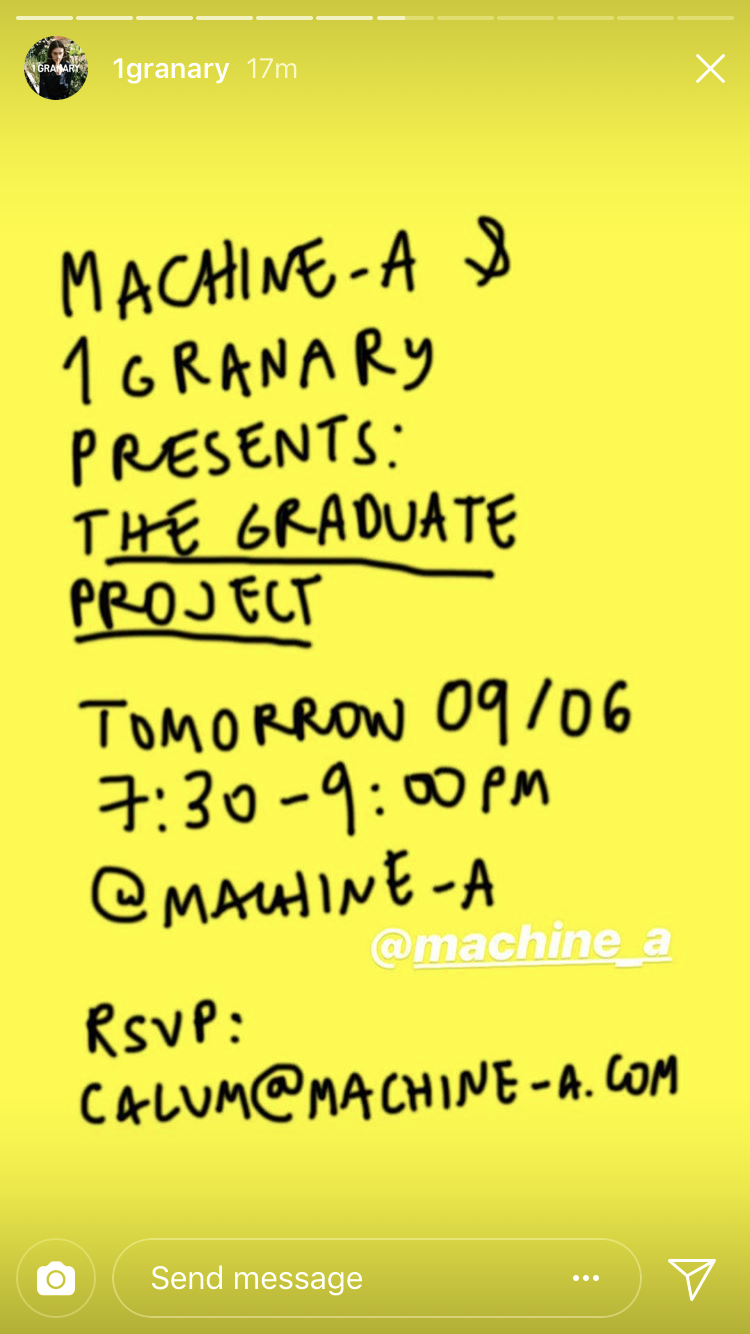 1granary 17m
1 GRANARY
MACHINE-A &
1 GRANARY
PRESENTS:
THE GRADUATE
PROJECT
TOMORROW 09/06
7:30-9:00PM
@MACHINE-A
@machine_a
RSVP:
CALUM@MACHINE-A.COM
Send message